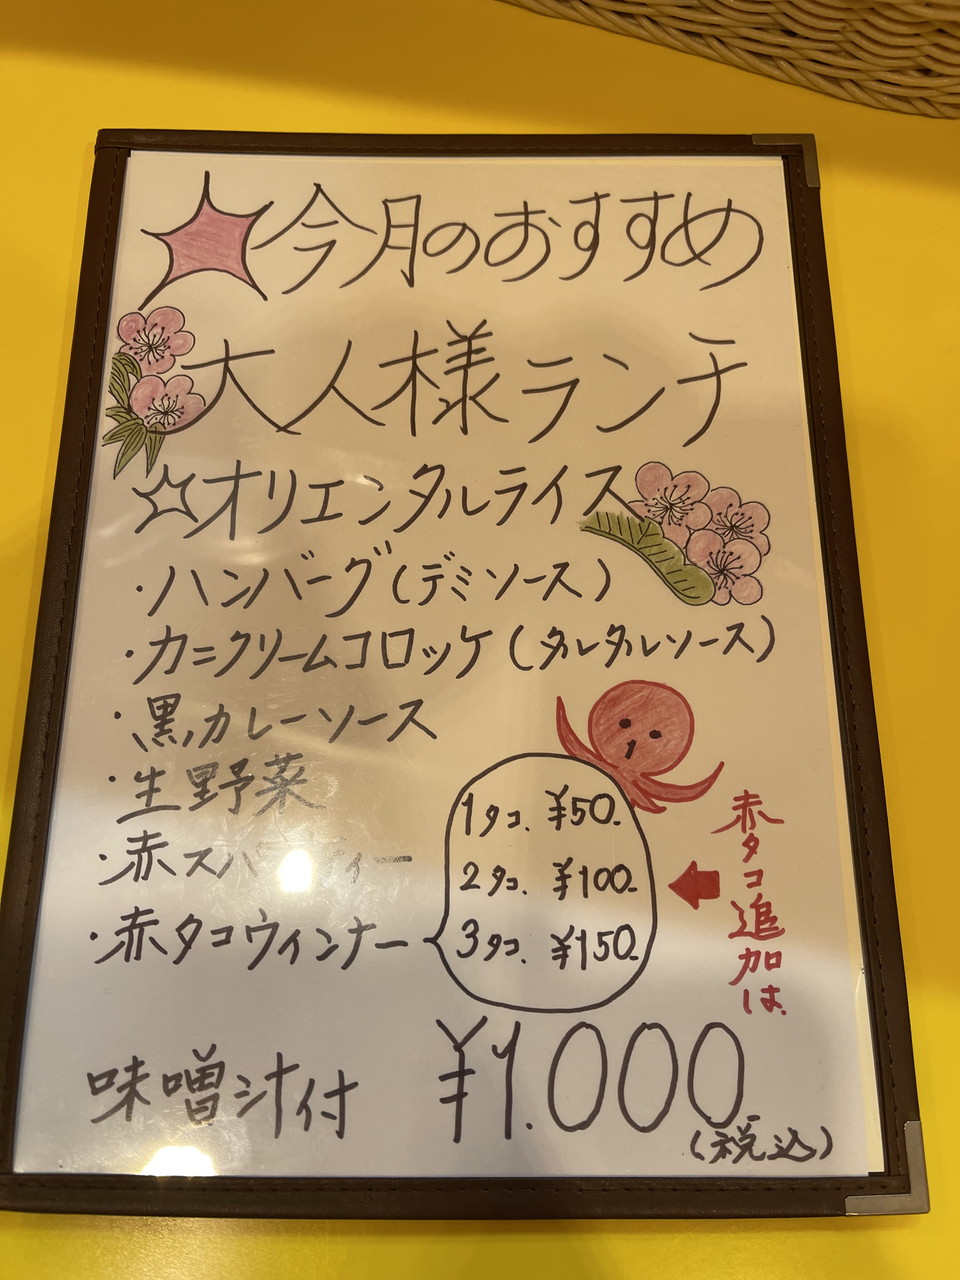 今月のおすすめ
大人様ランチ
☆オリエンタルライス
・ハンバーグ(デミソース)
・カニクリームコロッケ(タルタルソース)
・黒カレーソース
・生野菜
・赤スパ
・赤タコウィンナー
1タコ、¥50-
2タコ、¥100-
3タコ、¥150-
赤タコ追加は、
味噌汁付 ¥1.000-
(税込)